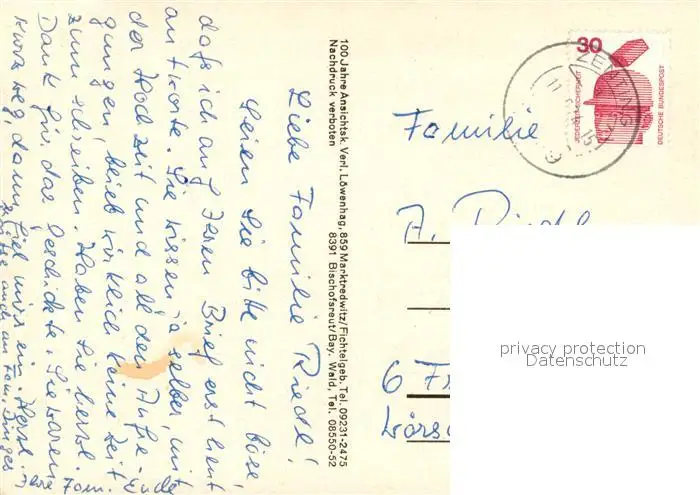 Liebe Familie Riedl!
Seien Sie bitte nicht böse,
daß ich auf Ihren Brief erst heut
antworte. Sie wissen ja selber, mit
der Hochzeit und all den
gungen, blieb wirklich keine Zeit
zum schreiben. Haben Sie herzl.
Dank für das Geschickte. Sie waren
kurz weg, dann fiel mir ein. Herzl.
Grüße auch an Fam.
Ihre Fam.
100 Jahre Ansichtsk. Verl. Löwenhag, 859 Marktredwitz/Fichtelgeb. Tel. 09231-2475
Nachdruck verboten 8391 Bischofsreut/Bay. Wald, Tel. 08550-52
30
JEDERZEIT SICHERHEIT
DEUTSCHE BUNDESPOST
ZENTING
Familie
A. Riedl
6
privacy protection
Datenschutz